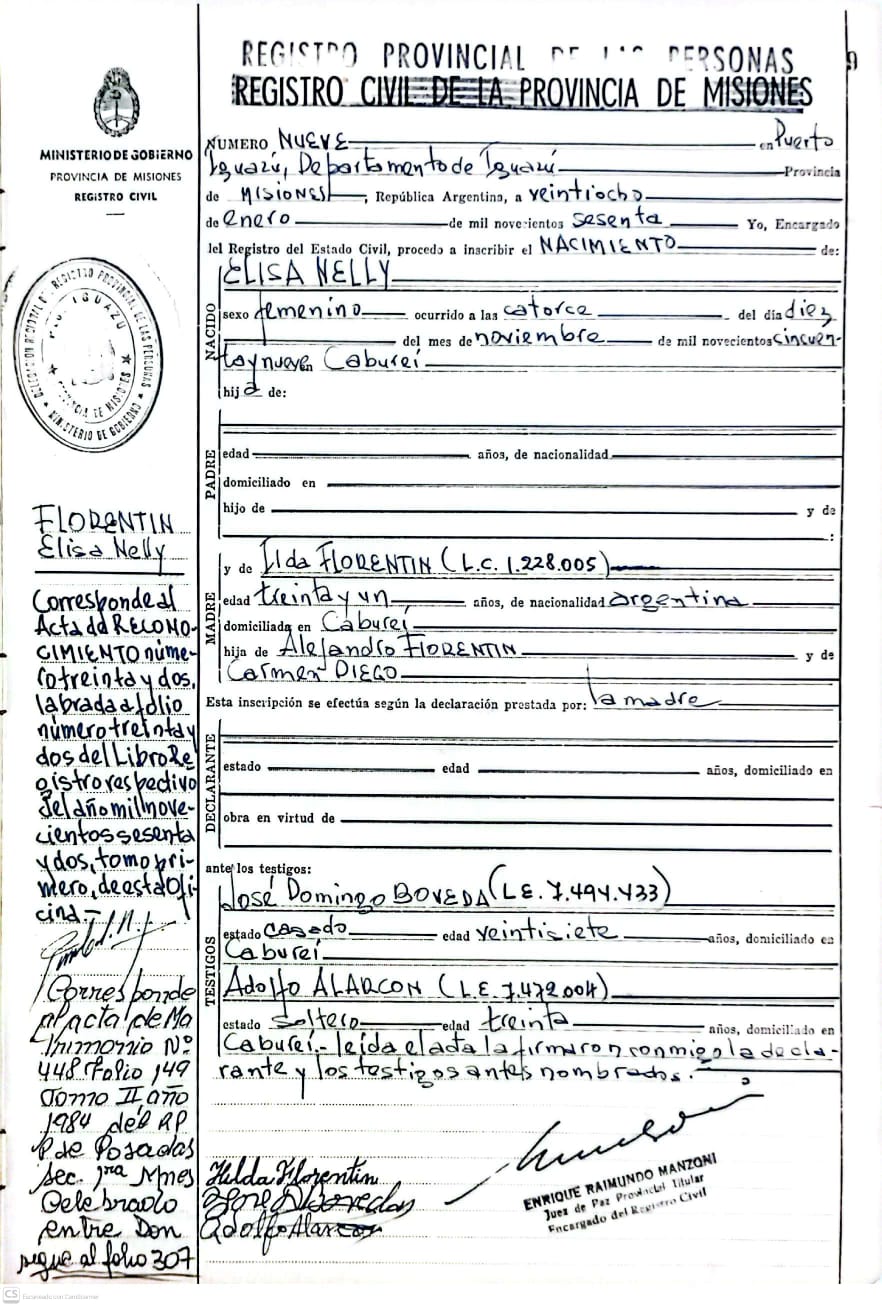 REGISTRO PROVINCIAL DE LAS PERSONAS
REGISTRO CIVIL DE LA PROVINCIA DE MISIONES
9
MINISTERIO DE GOBIERNO
PROVINCIA DE MISIONES
REGISTRO CIVIL
NUMERO NUEVE en Puerto
Iguazú, Departamento de Iguazú Provincia
de MISIONES, República Argentina, a veintiocho
de enero de mil novecientos sesenta Yo, Encargado
del Registro del Estado Civil, procedo a inscribir el NACIMIENTO de:
NACIDO
ELISA NELLY
sexo femenino ocurrido a las catorce del día diez
del mes de noviembre de mil novecientos cincuen-
ta y nueve en Cabureí
hija de:
DELEGACION REGIONAL DEL REGISTRO PROVINCIAL DE LAS PERSONAS
IGUAZU
PROVINCIA DE MISIONES
MINISTERIO DE GOBIERNO
PADRE
edad años, de nacionalidad
domiciliado en
hijo de y de
:
MADRE
y de Ilda FLORENTIN (L.C. 1.228.005)
edad treinta y un años, de nacionalidad argentina
domiciliada en Cabureí
hija de Alejandro FLORENTIN y de
Carmen DIEGO
Esta inscripción se efectúa según la declaración prestada por: la madre
DECLARANTE
estado edad años, domiciliado en
obra en virtud de
ante los testigos:
TESTIGOS
José Domingo BOVEDA (L.E. 7.494.433)
estado casado edad veintisiete años, domiciliado en
Cabureí
Adolfo ALARCON (L.E. 7.472.004)
estado soltero edad treinta años, domiciliado en
Cabureí.- leída el acta la firmaron conmigo la decla-
rante y los testigos antes nombrados.
Hilda Florentin
José D Bovedas
Adolfo Alarcon
ENRIQUE RAIMUNDO MANZONI
Juez de Paz Provincial Titular
Encargado del Registro Civil
FLORENTIN
Elisa Nelly
Corresponde al
Acta de RECONO-
CIMIENTO núme-
ro treinta y dos,
labrada a folio
número treinta y
dos del Libro Re
gistro respectivo
del año mil nove-
cientos sesenta
y dos, tomo pri-
mero, de esta Ofi
cina.-
Corresponde
al acta de Ma
trimonio Nº
448 Folio 149
Tomo II año
1984 del RP
P de Posadas
sec. 1ra Mnes
Celebrado
entre Don
sigue al folio 307
CS Escaneado con CamScanner